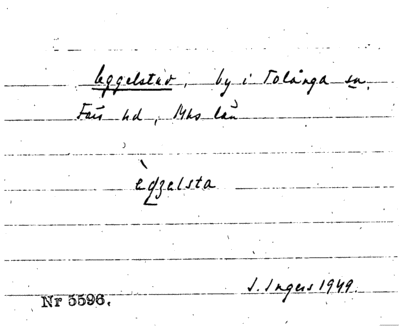 Eggelstad, by i Tolånga sn.
Färs hd, Mhs län
èg̨gelsta
I. Ingers 1949.
Nr 5596.